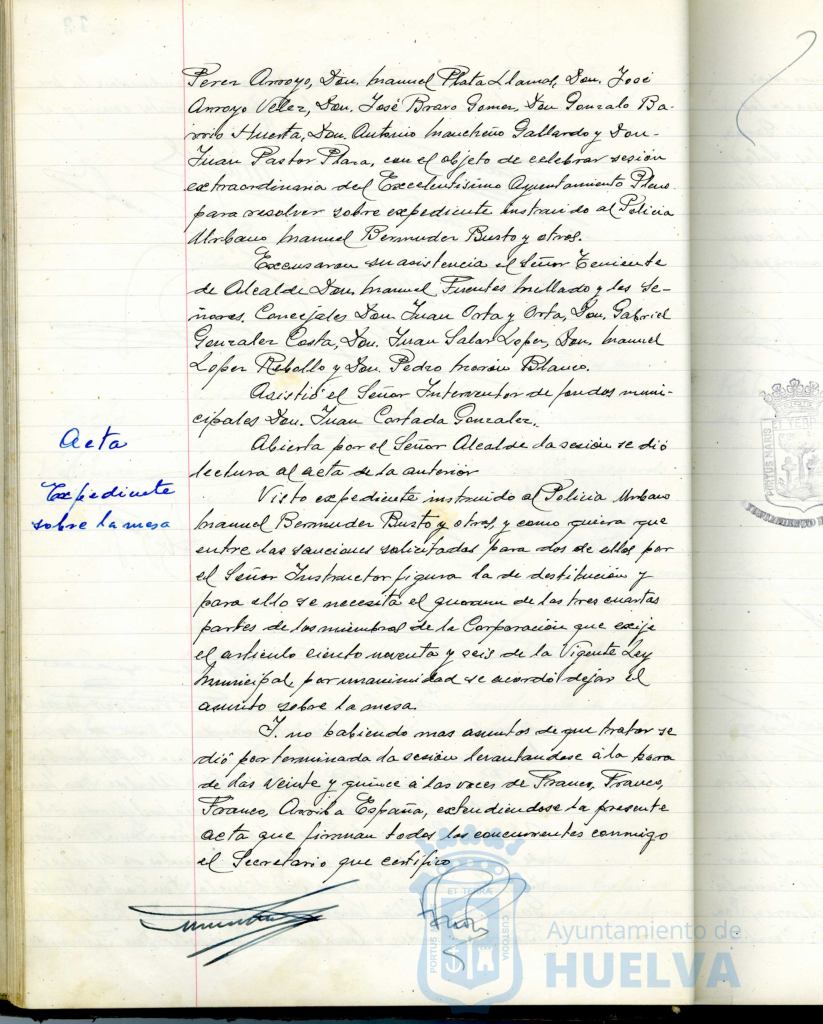 Perez Arroyo, Don. Manuel Plata Llamas, Don. José
Arroyo Velez, Don. José Bravo Gomez, Don Gonzalo Ba-
rrio Huerta, Don. Antonio Mancheño Gallardo y Don-
Juan Pastor Plaza, con el objeto de celebrar sesión
extraordinaria del Excelentisimo Ayuntamiento Pleno
para resolver sobre expediente instruido al Policia
Urbano Manuel Bermudez Busto y otros.
Excusaron su asistencia el Señor Teniente
de Alcalde Don. Manuel Fuentes Millado y los Se-
ñores. Concejales Don Juan Orta y Orta, Don. Gabriel
Gonzalez Costa, Don. Juan Salas Lopez, Don. Manuel
Lopez Rebollo y Don. Pedro Morón Blanco.
Asistió el Señor Interventor de fondos muni-
cipales Don. Juan Cortada Gonzalez.
Abierta por el Señor Alcalde la sesión se dió
lectura al acta de la anterior
Acta
Visto expediente instruido al Policia Urbano
Manuel Bermudez Busto y otros, y como quiera que
entre las sanciones solicitadas para dos de ellos por
el Señor Instructor figura la de destitución y
para ello se necesita el quorum de las tres cuartas
partes de los miembros de la Corporación que exije
el articulo ciento noventa y seis de la Vigente Ley
Municipal, por unanimidad se acordó dejar el
asunto sobre la mesa.
Expediente
sobre la mesa
Y. no habiendo mas asuntos de que tratar se
dió por terminada la sesión levantandose à la hora
de las veinte y quince à las voces de Franco, Franco,
Franco, Arriba España, extendiendose la presente
acta que firman todos los concurrentes conmigo
el Secretario que certifico
PORTUS MARIS ET TERRAE CUSTODIA
Ayuntamiento de
HUELVA